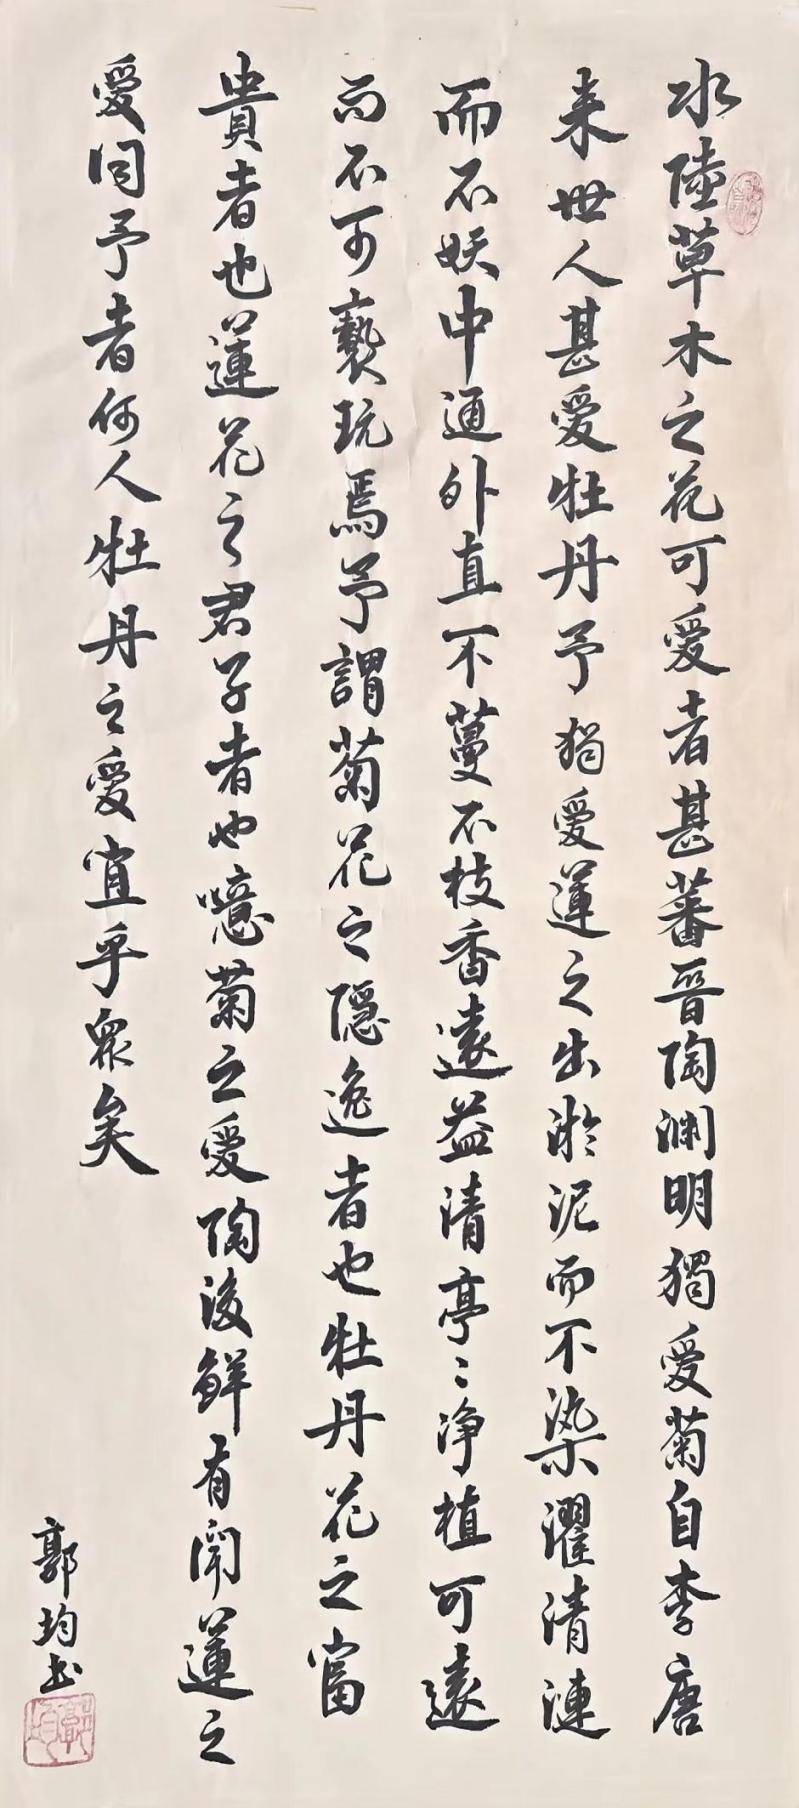 水陸草木之花可愛者甚蕃晉陶渊明獨愛菊自李唐
来世人甚愛牡丹予獨愛蓮之出淤泥而不染濯清漣
而不妖中通外直不蔓不枝香遠益清亭〻净植可遠
而不可褻玩焉予謂菊花之隱逸者也牡丹花之富
貴者也蓮花之君子者也噫菊之愛陶後鮮有聞蓮之
愛同予者何人牡丹之愛宜乎眾矣
郭均书
郭均